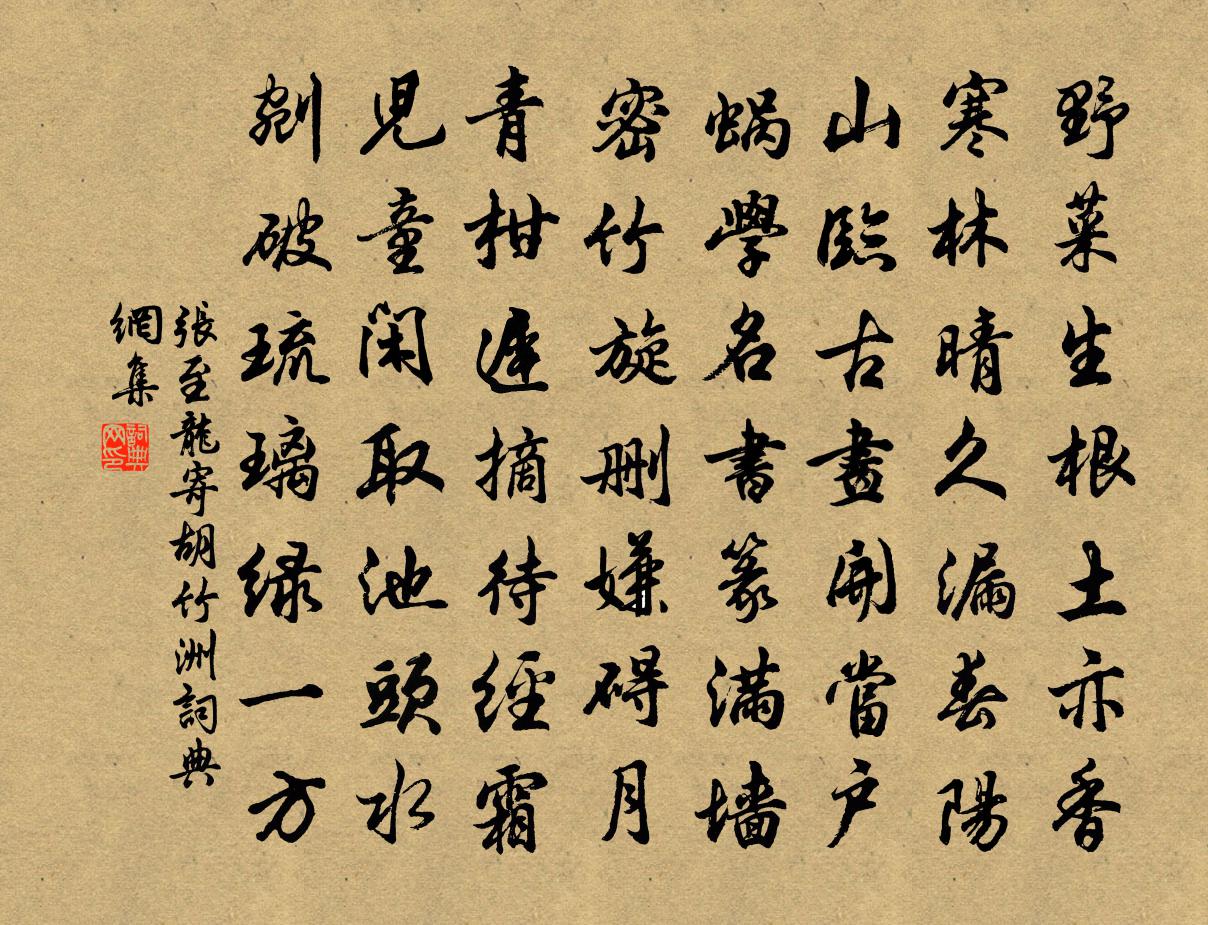 野菜生根土亦香
寒林晴久漏春陽
山臨古畫開當户
蝸學名書篆滿墙
密竹旋刪嫌碍月
青柑遲摘待經霜
兒童閑取池頭水
剜破琉璃緑一方
張至龍寄胡竹洲詞典
網集
詞典
网印